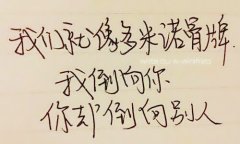 我们就像多米诺骨牌
我倒向你
你却倒向别人